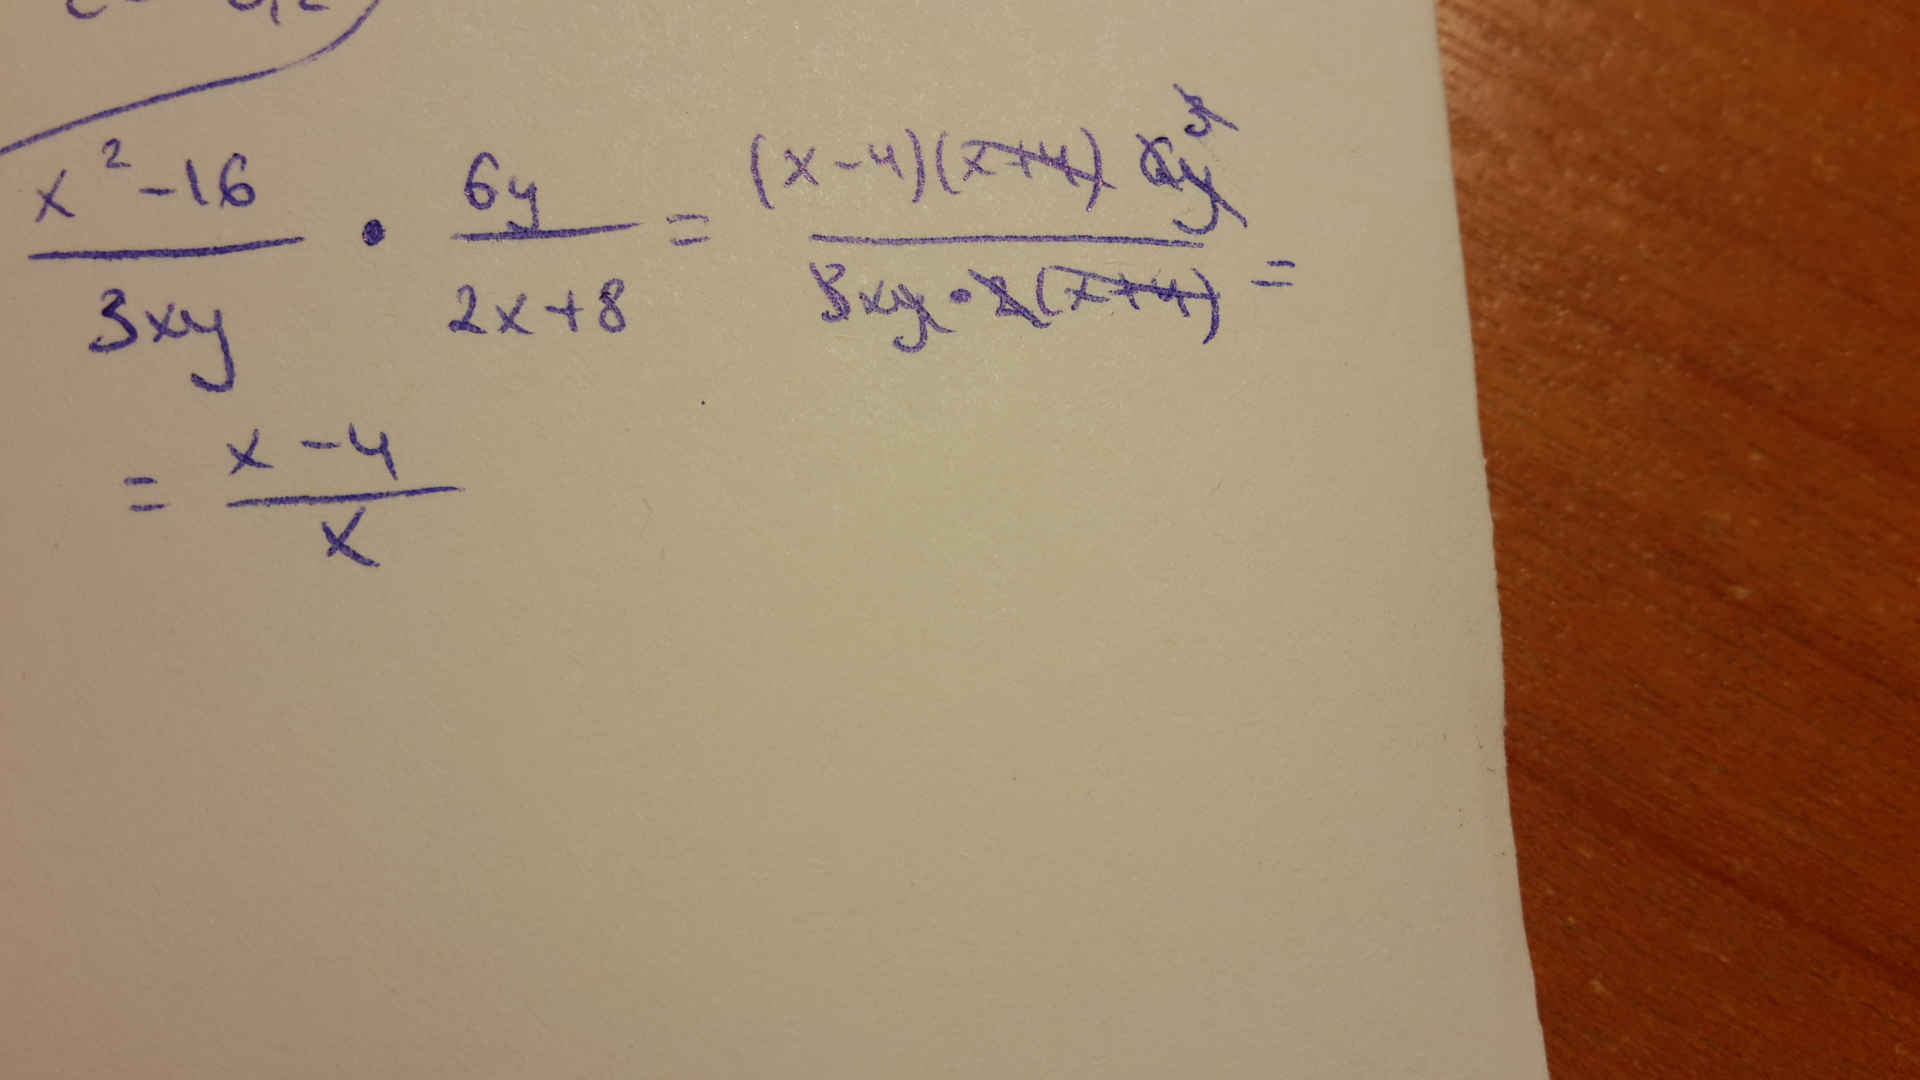 x² - 16 / 3xy • 6y / 2x + 8 = (x - 4)(x + 4) 6y / 3xy • 2(x + 4) =
= x - 4 / x